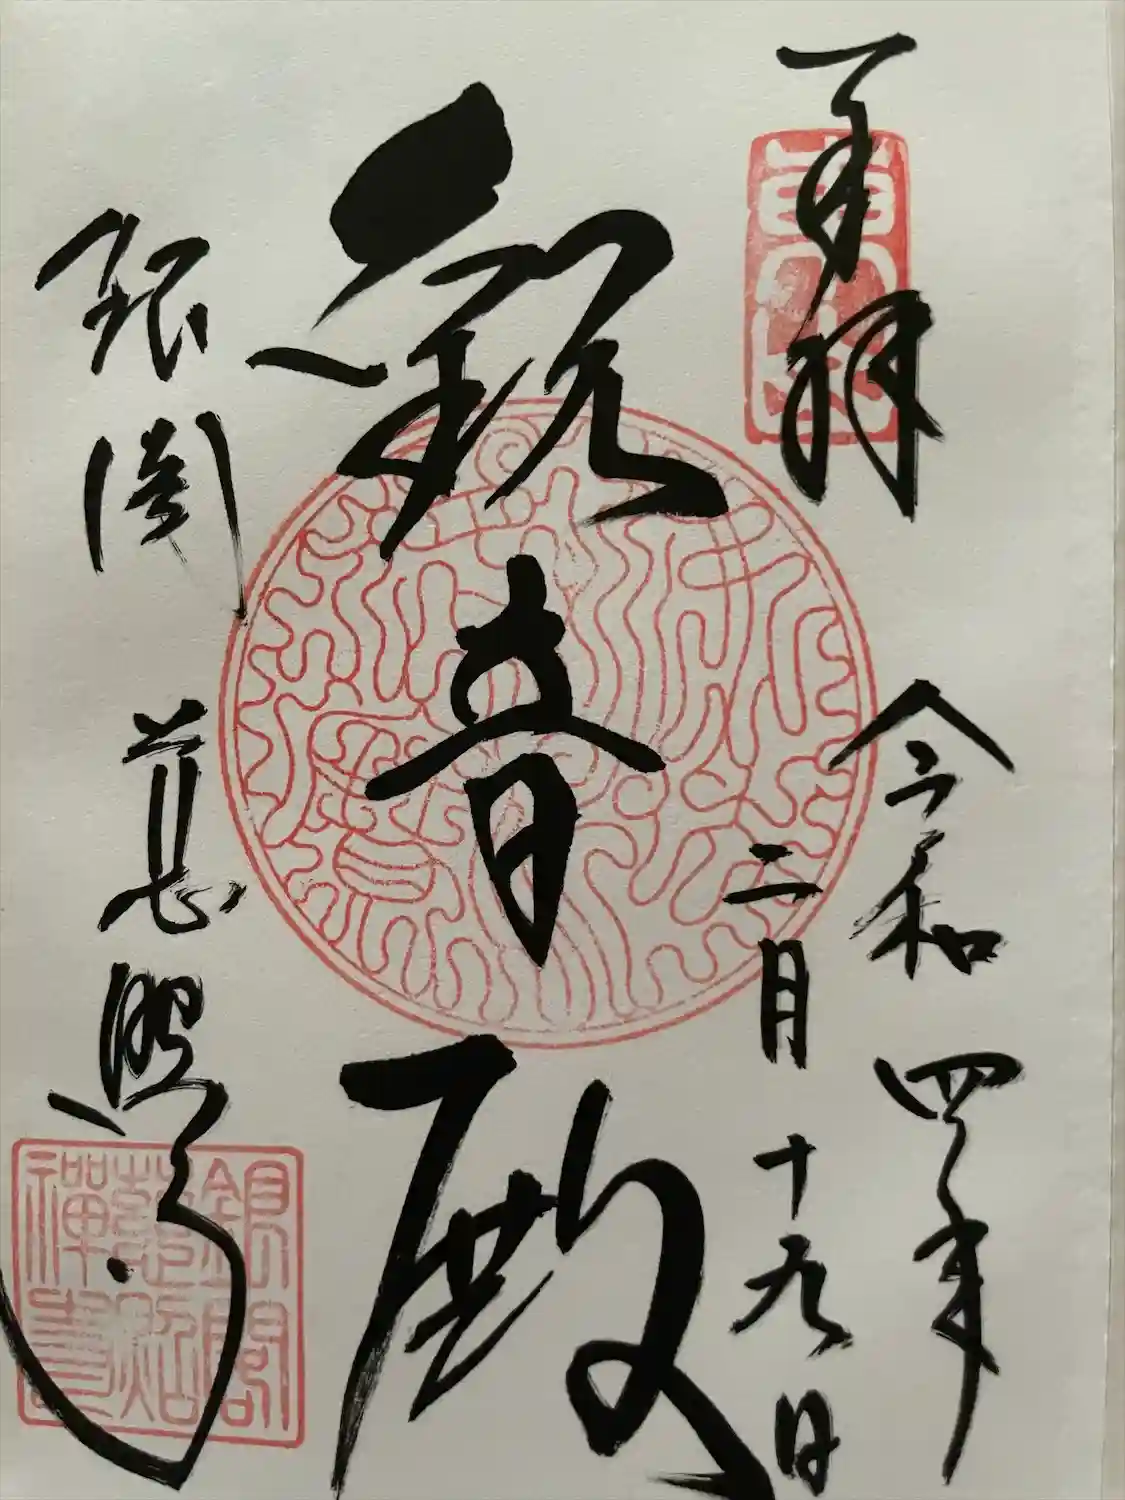 奉拝
令和四年
二月十九日
観音殿
銀閣慈照寺
東山
銀閣
慈照
禅寺